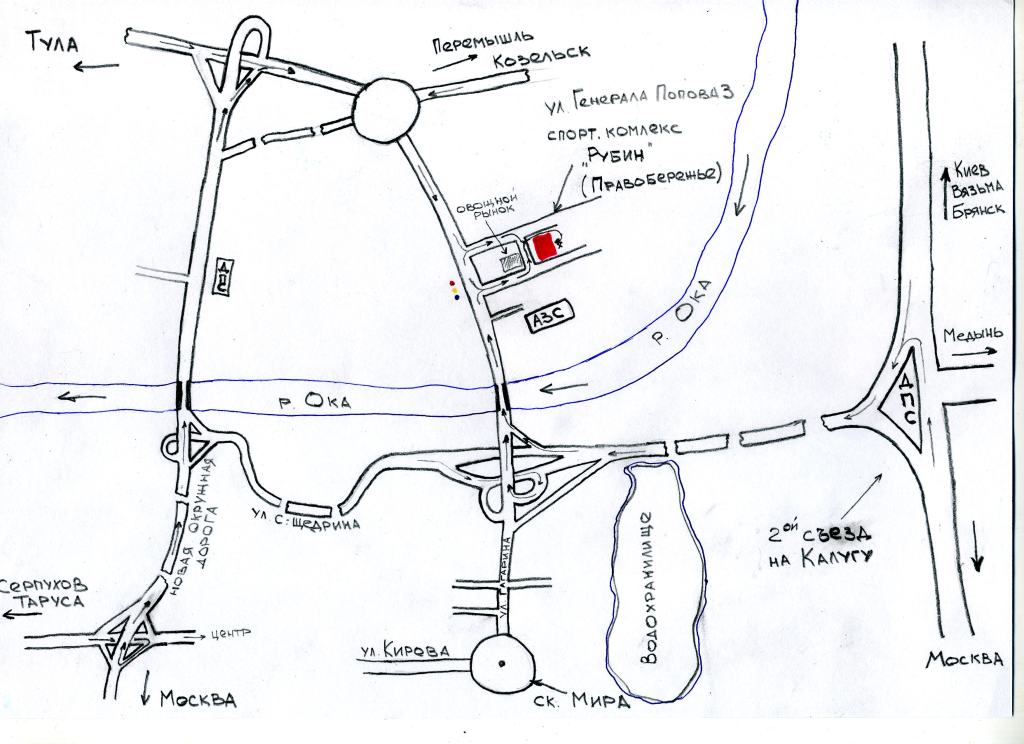 Тула
Перемышль
Козельск
ул. Генерала Попова 3
спорт. комлекс
"Рубин"
(Правобережье)
овощной
рынок
Киев
Вязьма
Брянск
АЗС
р. Ока
Медынь
ДПС
р. Ока
Новая окружная
дорога
ул. С-Щедрина
2ой съезд
на Калугу
Водохранилище
ул. Гагарина
Серпухов
Таруса
центр
ул. Кирова
Москва
ск. Мира
Москва